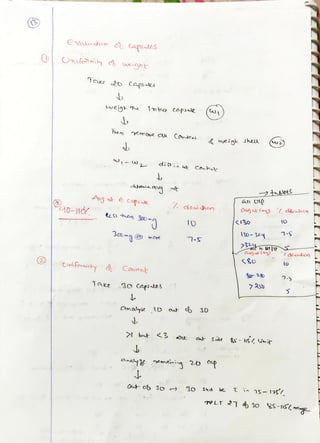 13
Evaluation of capsules
① Uniformity of weight
Take 20 capsules
↓
weigh the Intact capsule (W₁)
↓
Then remove all Content & weigh shell (W₂)
↓
W₁ - W₂
↓
Avg wt of capsule % deviation
less than 300mg 10
300mg or more 7.5
90-110%
→ tablets
Avg wt (mg) % deviation
<130 10
130-324 7.5
>324 5
Avg wt (mg) % deviation
<80 10
80-250 7.5
>250 5
② Uniformity of Content
Take 30 capsules
↓
analyse 10 out of 30
↓
>1 but <3 out side 85-115% limit
↓
analyse remaining 20 cap
↓
out of 30 → 30 75-125%
27 of 30 85-115% range